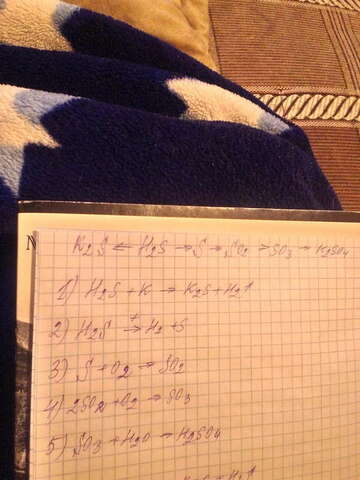 K₂S ⇐ H₂S → S → SO₂ → SO₃ → K₂SO₄
1) H₂S + K → K₂S + H₂↑
2) H₂S →ᵗ H₂ + S
3) S + O₂ → SO₂
4) 2SO₂ + O₂ → SO₃
5) SO₃ + H₂O → H₂SO₄